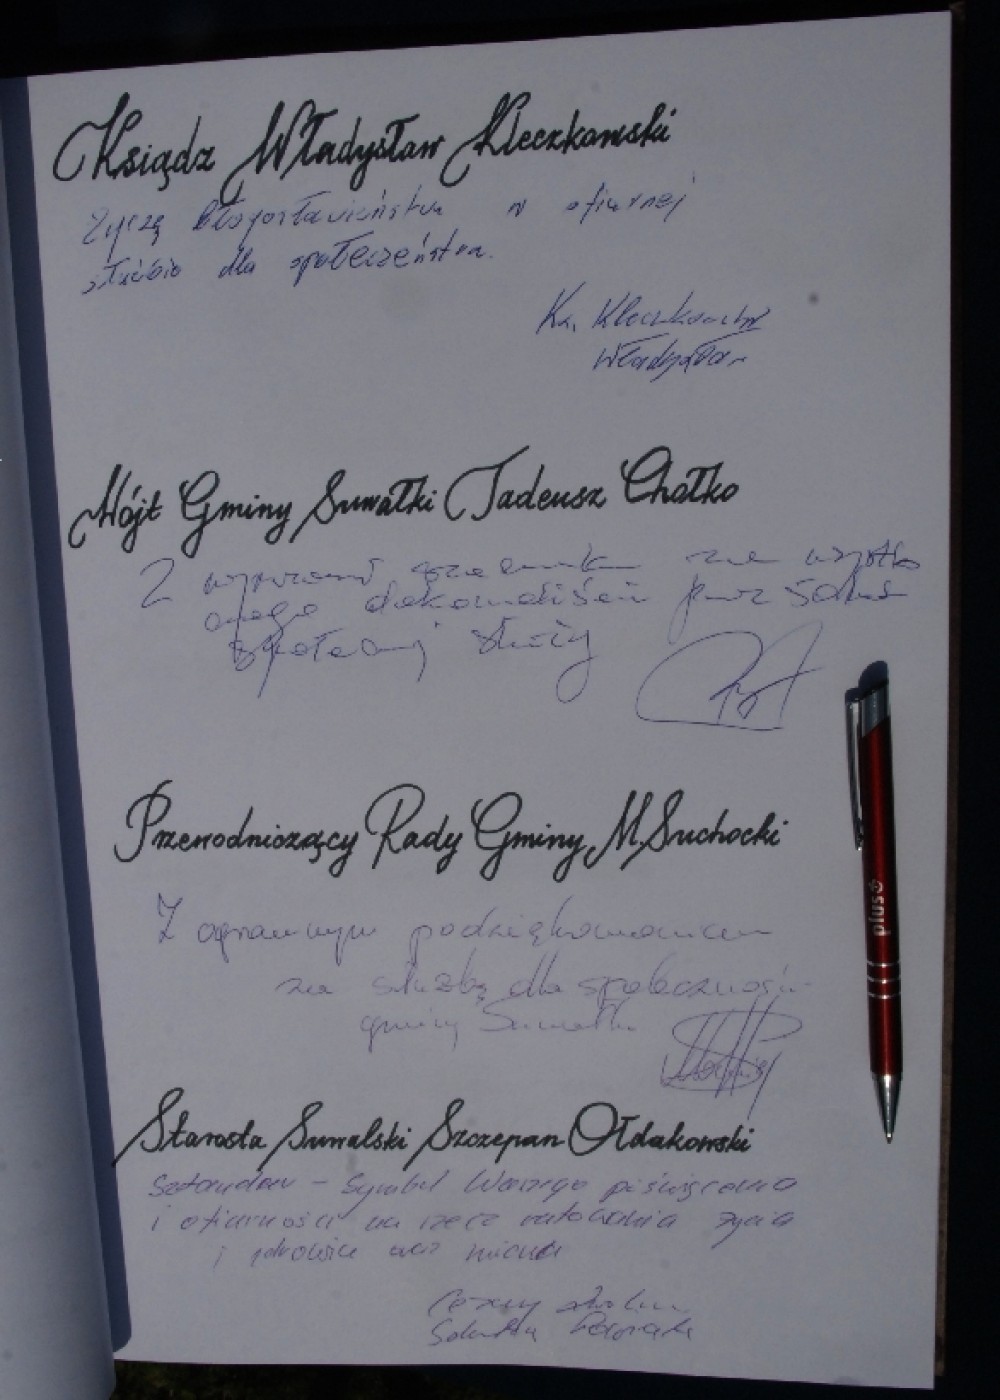 Ksiądz Władysław Kleczkowski
Życzę błogosławieństwa w ofiarnej
służbie dla społeczeństwa.
Ks. Kleczkowski
Władysław
Wójt Gminy Suwałki Tadeusz Chołko
Z wyrazami za
społecznej służby
Przewodniczący Rady Gminy M. Suchocki
Z ogromnym podziękowaniem
za służbę dla społeczności
gminy Suwałki
plus
Starosta Suwalski Szczepan Ołdakowski
Sztandar - Symbol Waszego poświęcenia
i ofiarności na rzecz ratowania życia
i zdrowia oraz mienia